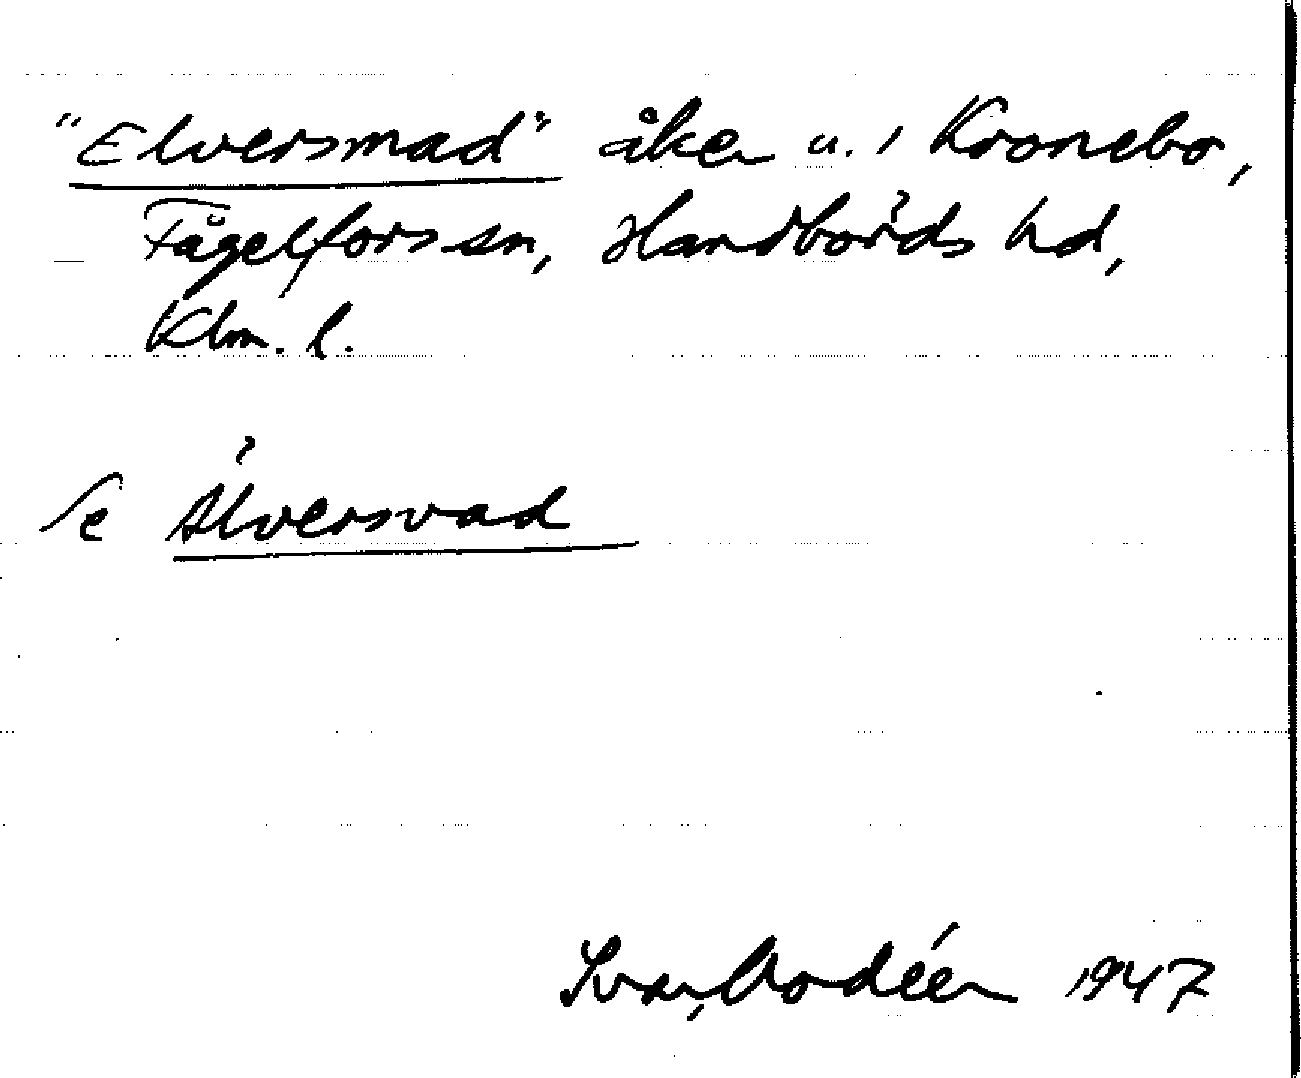 "Elversmad" åker u. i Kronebo,
Fågelfors sn, Handbörds hd,
Klm. l.
Se Älversvad
Ivar Modéer 1947